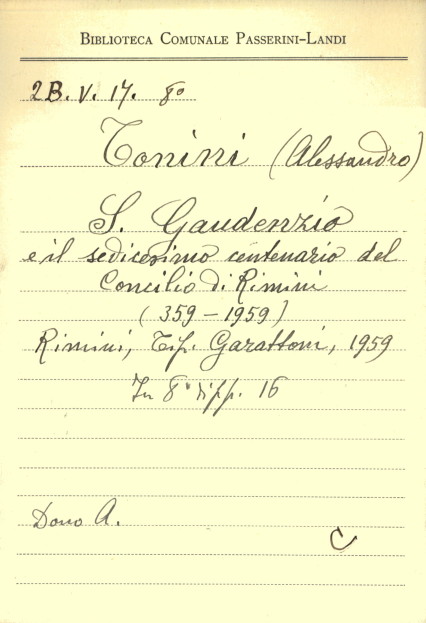 BIBLIOTECA COMUNALE PASSERINI-LANDI
2B. V. 17. 8º
Tonini (Alessandro)
S. Gaudenzio
e il sedicesimo centenario del
Concilio di Rimini
(359-1959)
Rimini, Tip. Garattoni, 1959
In 8º di pp. 16
Dono A.
C